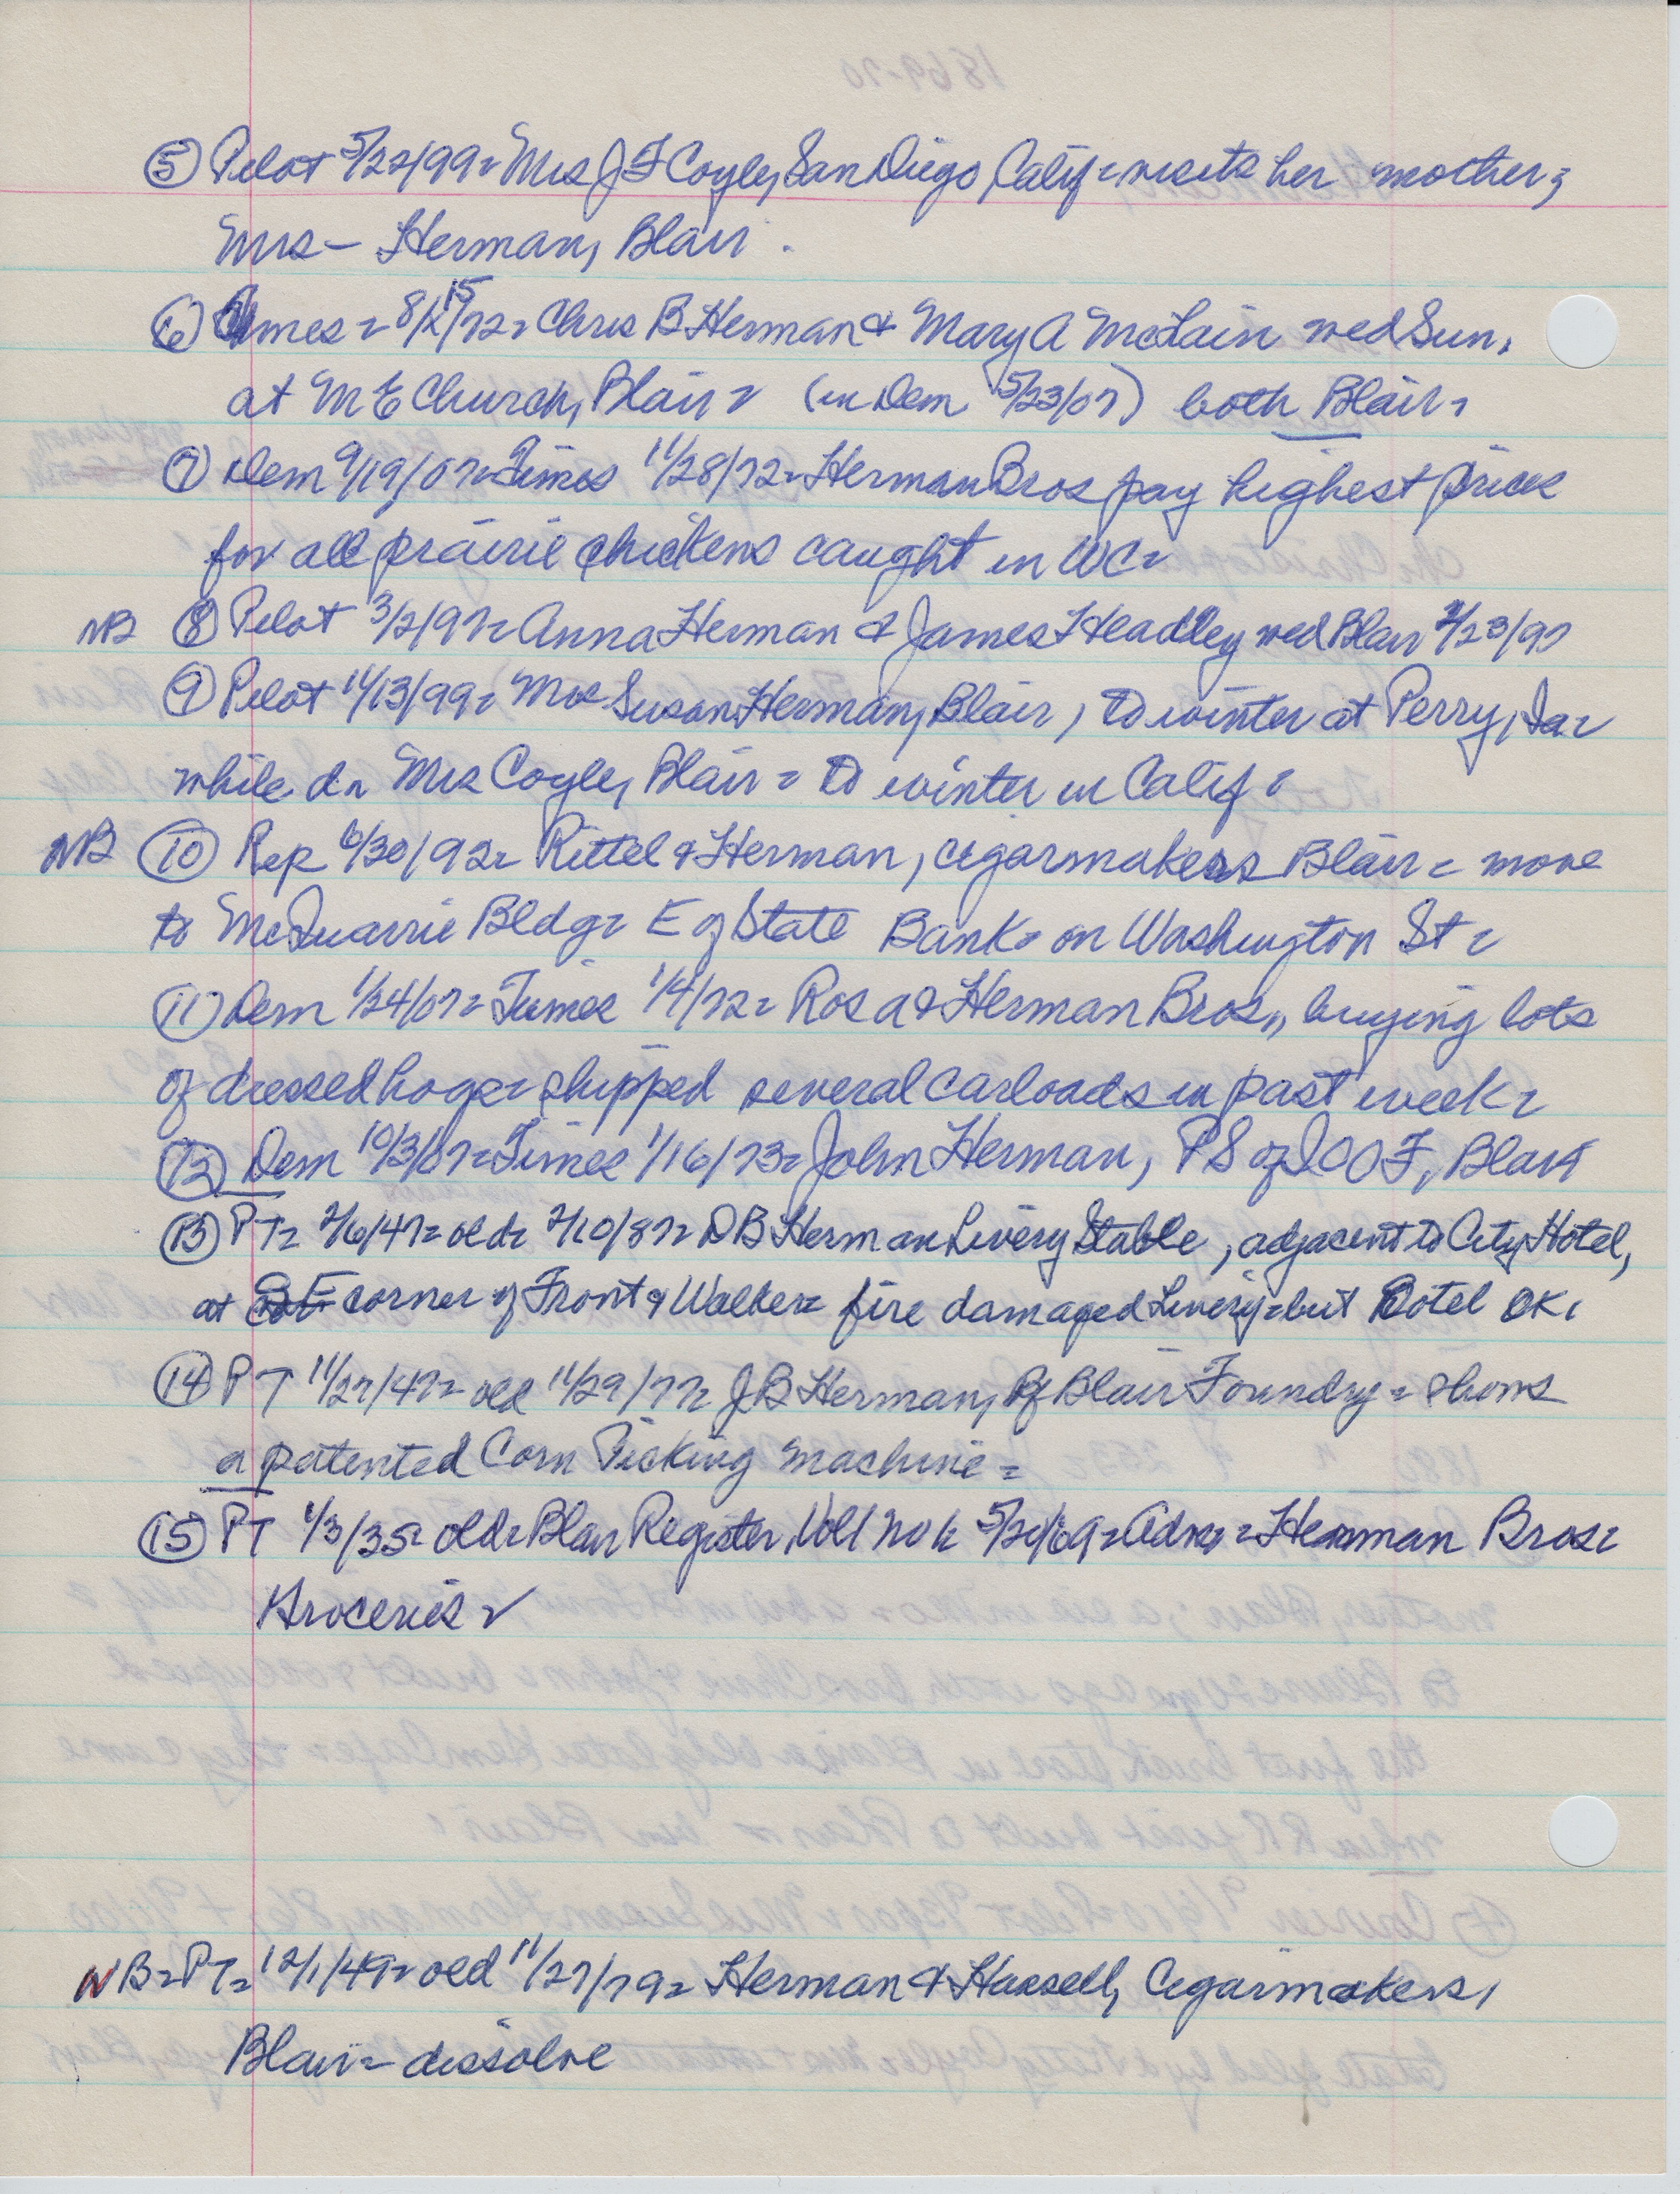 ⑤ Pilot 5/22/99= Mrs J F Coyle, San Diego, Calif= visits her mother;
Mrs- Herman, Blair.
⑥ Times= 8/15/72= Chris B Herman & Mary A McLain wed Sun,
at M E Church, Blair= (in Dem 5/23/07) both Blair=
⑦ Dem 9/19/07= Times 11/28/72= Herman Bros pay highest prices
for all prairie chickens caught in WC=
NB ⑧ Pilot 3/2/97= Anna Herman & James Headley wed Blair 2/23/97
⑨ Pilot 11/13/99= Mrs Susan Herman, Blair, to winter at Perry, Ia=
while da Mrs Coyle, Blair= to winter in Calif=
NB ⑩ Rep 6/30/92= Rittel & Herman, cigarmakers Blair= move
to McQuarrie Bldg= E of State Bank= on Washington St=
⑪ Dem 1/24/07= Times 1/4/72= Rosa & Herman Bros,, buying lots
of dressed hogs= shipped several carloads in past week=
⑫ Dem 10/3/07= Times 1/16/73= John Herman, PS of IOOF, Blair
⑬ PT= 2/6/47= old= 2/10/87= D B Herman Livery Stable, adjacent to City Hotel,
at SE corner of Front & Walker= fire damaged Livery= but Hotel OK,
⑭ PT 11/27/47= old 11/29/77= J B Herman, of Blair Foundry= shows
a patented Corn Picking machine=
⑮ PT 1/3/35= old= Blair Register, Vol 1 No 1= 5/20/69= Adv,= Herman Bros=
Groceries=
NB= PT= 12/1/49= old 11/27/79= Herman & Hassell, Cigarmakers,
Blair= dissolve